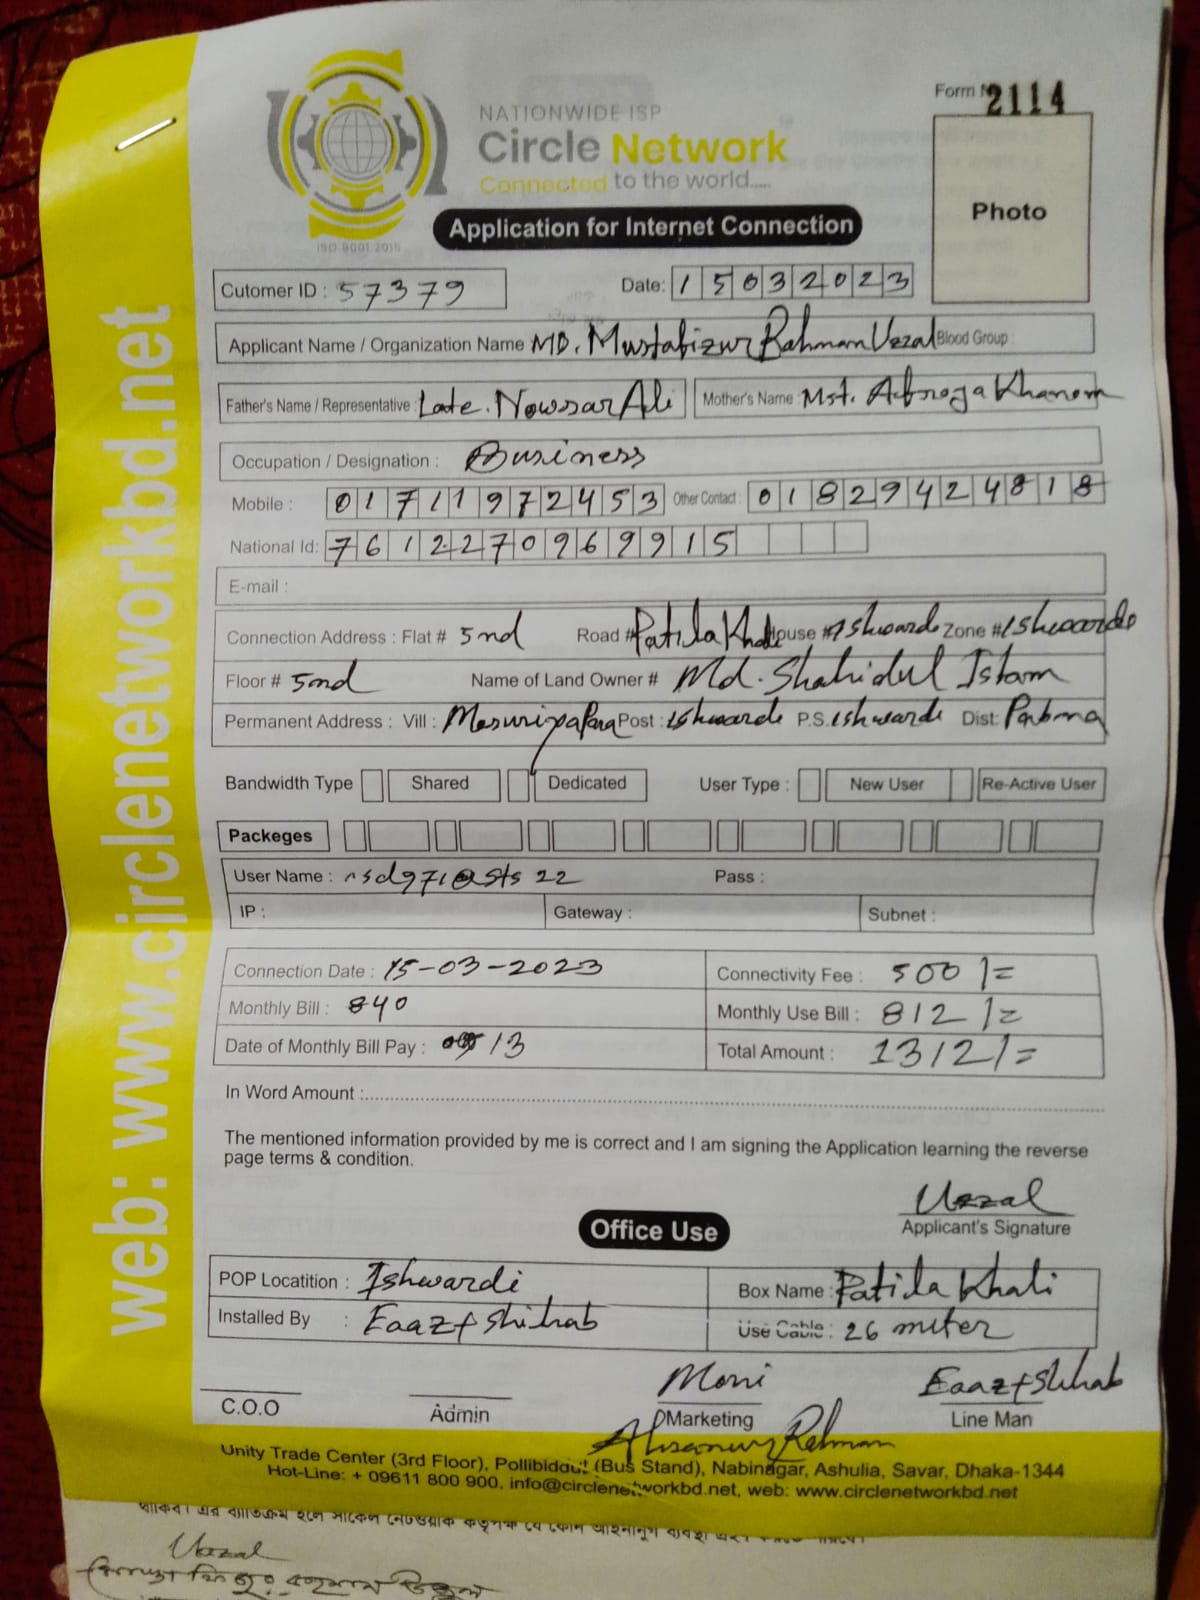 NATIONWIDE ISP
Circle Network
Connected to the world.....
ISO 9001:2015
Form N 2114
Photo
Application for Internet Connection
Cutomer ID : 57379 Date: 15032023
Applicant Name / Organization Name MD. Mustafizur Rahman Uzzal Blood Group :
Father's Name / Representative : Late. Nowsar Ali Mother's Name : Mst. Afroga Khanom
Occupation / Designation : Business
Mobile : 01711972453 Other Contact : 01829424818
National Id: 7612270969915
E-mail :
Connection Address : Flat # 5nd Road # Patila Khali House # Ishwardi Zone # Ishwardi
Floor # 5nd Name of Land Owner # Md. Shahidul Islam
Permanent Address : Vill : Post : Ishwardi P.S. Ishwardi Dist: Pabna
Bandwidth Type Shared Dedicated User Type : New User Re-Active User
Packeges
User Name : nsd971@sts 22 Pass :
IP : Gateway : Subnet :
Connection Date : 15-03-2023 Connectivity Fee : 500/=
Monthly Bill : 840 Monthly Use Bill : 812/=
Date of Monthly Bill Pay : 13 Total Amount : 1312/=
In Word Amount :
The mentioned information provided by me is correct and I am signing the Application learning the reverse
page terms & condition.
Uzzal
Applicant's Signature
Office Use
POP Locatition : Ishwardi Box Name : Patila Khali
Installed By : Eaaz + Shihab Use Cable : 26 miter
Moni Eaaz + Shihab
C.O.O Admin Marketing Line Man
Ahsanur Rahman
Unity Trade Center (3rd Floor), Pollibiddut (Bus Stand), Nabinagar, Ashulia, Savar, Dhaka-1344
Hot-Line: + 09611 800 900, info@circlenetworkbd.net, web: www.circlenetworkbd.net
web: www.circlenetworkbd.net
Uzzal